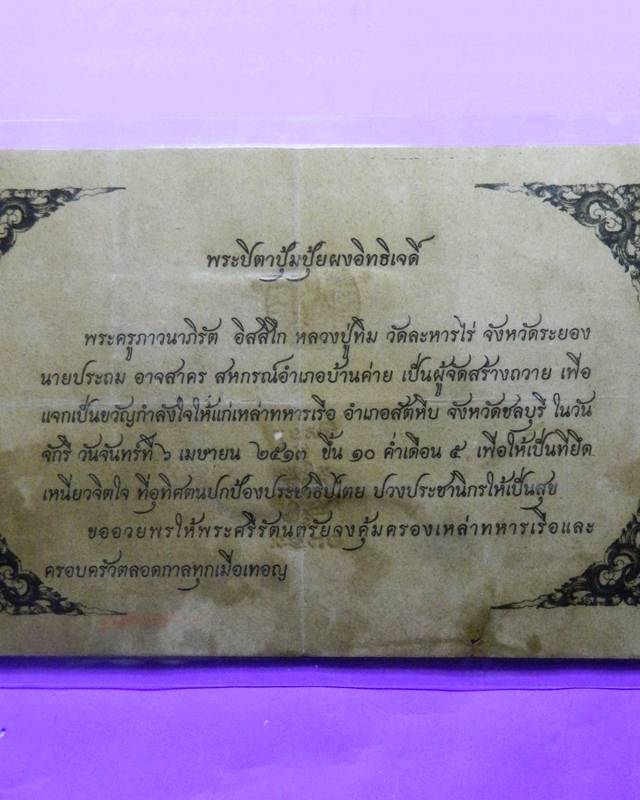 พระปิตาปุ้มปุ้ยผงอิทธิเจดิ์
พระครูภาวนาภิรัต อิสสิโก หลวงปู่ทิม วัดละหารไร่ จังหวัดระยอง
นายประถม อาจสาคร สหกรณ์อำเภอบ้านค่าย เป็นผู้จัดสร้างถวาย เพื่อ
แจกเป็นขวัญกำลังใจให้แก่เหล่าทหารเรือ อำเภอสัตหีบ จังหวัดชลบุรี ในวัน
จักรี วันจันทร์ที่ ๖ เมษายน ๒๕๑๓ ขึ้น ๑๐ ค่ำเดือน ๕ เพื่อให้เป็นที่ยึด
เหนี่ยวจิตใจ ที่อุทิศตนปกป้องประชาธิปไตย ปวงประชานิกรให้เป็นสุข
ขออวยพรให้พระศรีรัตนตรัยจงคุ้มครองเหล่าทหารเรือและ
ครอบครัวตลอดกาลทุกเมื่อเทอญ